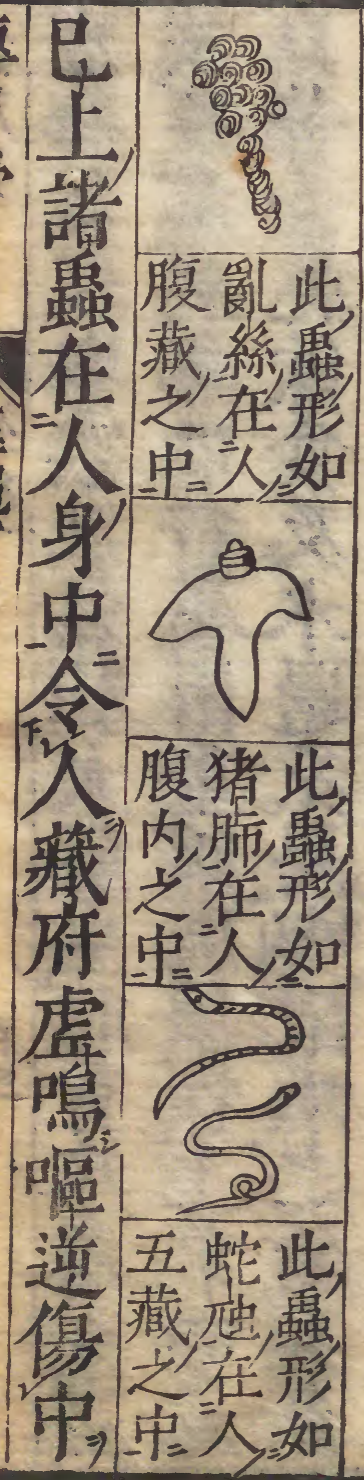 此蟲形如
亂絲在人
腹藏之中
此蟲形如
猪肺在人
腹内之中
此蟲形如
蛇虺在人
五藏之中
已上諸蟲在人身中令人藏府虛鳴嘔逆傷中